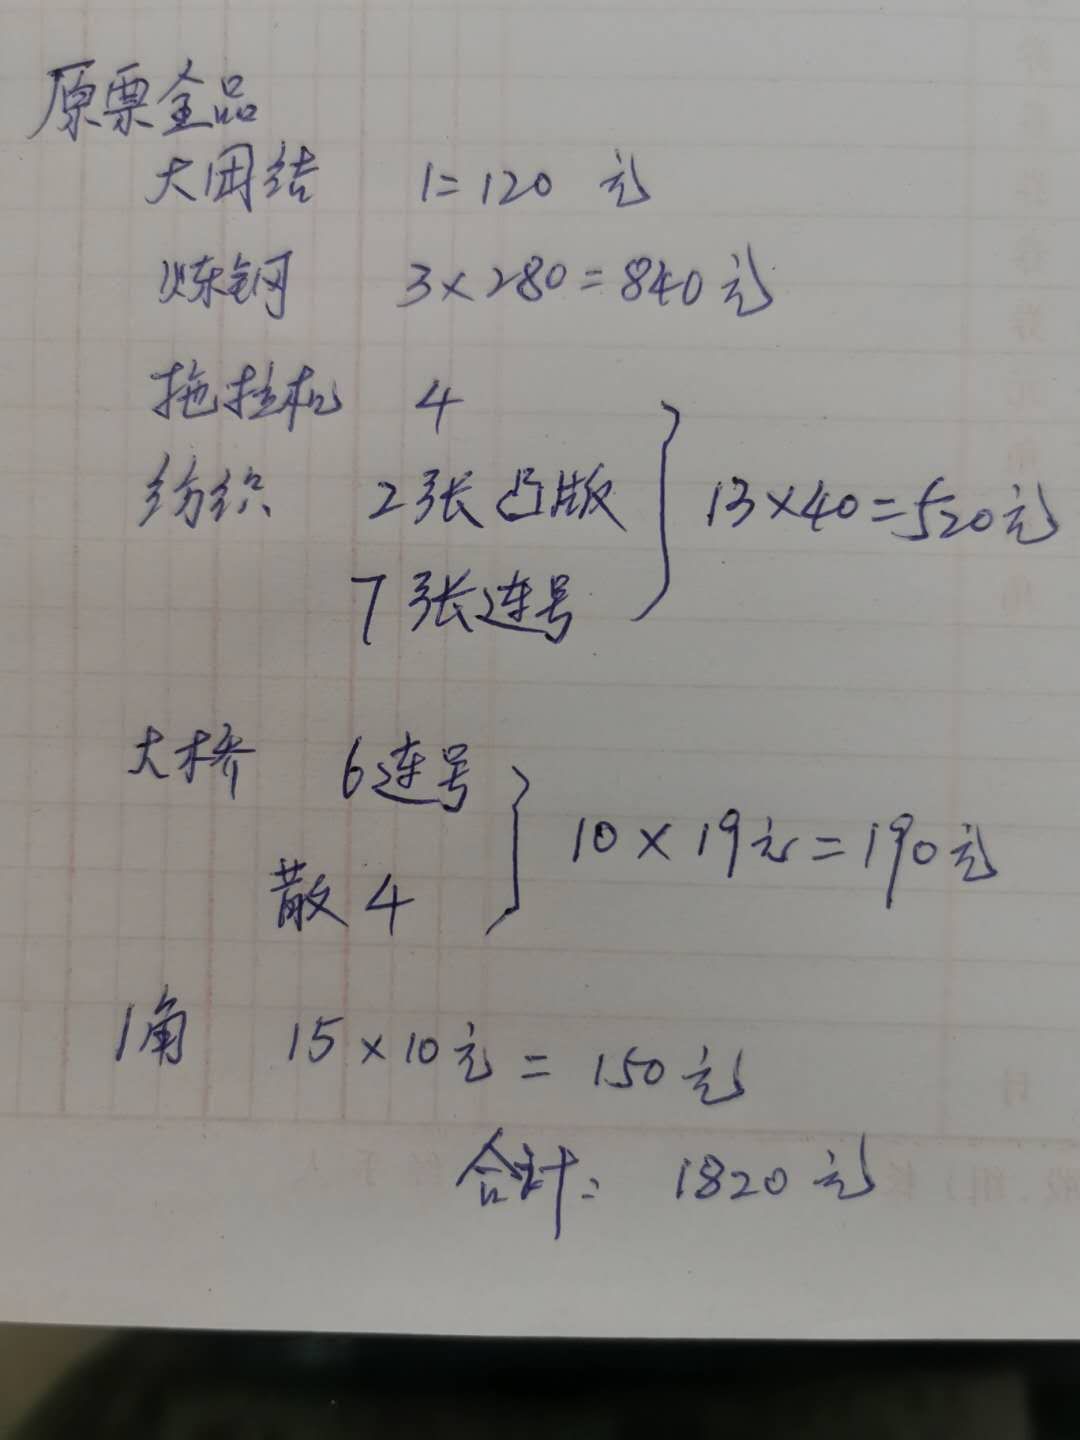 原票全品
大团结 1=120 元
炼钢 3×280=840元
拖拉机 4
纺织 2张凸版
7张连号
13×40=520元
大桥 6连号
散4
10×19元=190元
1角 15×10元=150元
合计: 1820元